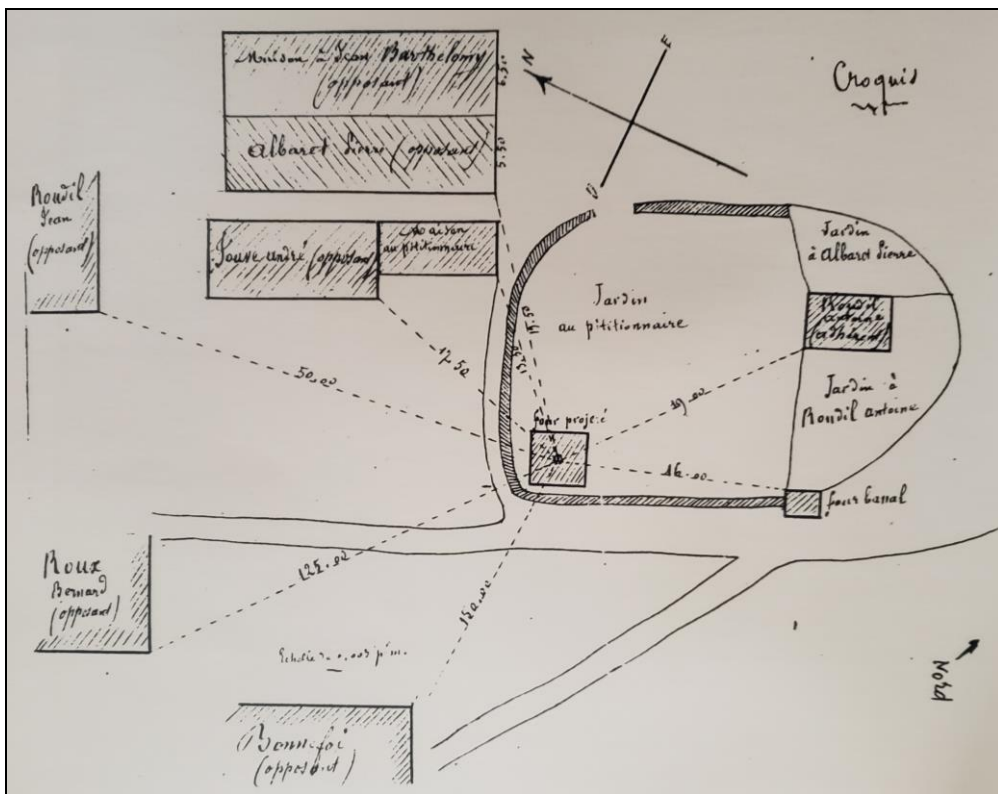 Croquis
Maison à Jean Barthelomy
(opposant)
6.50
Albaret Pierre (opposant)
5.50
N
E
O
Roudil
Jean
(opposant)
Jouve andré (opposant)
Maison
au pétitionnaire
Jardin
à Albaret Pierre
Jardin
au pétitionnaire
Roudil
antoine
(adhérent)
Jardin à
Roudil antoine
50.00
17.50
13.50
19.00
four projeté
16.00
four banal
Roux
Bernard
(opposant)
125.00
120.00
Echelle de 0.005 p% m.
Nord
Bonnefoi
(opposant)